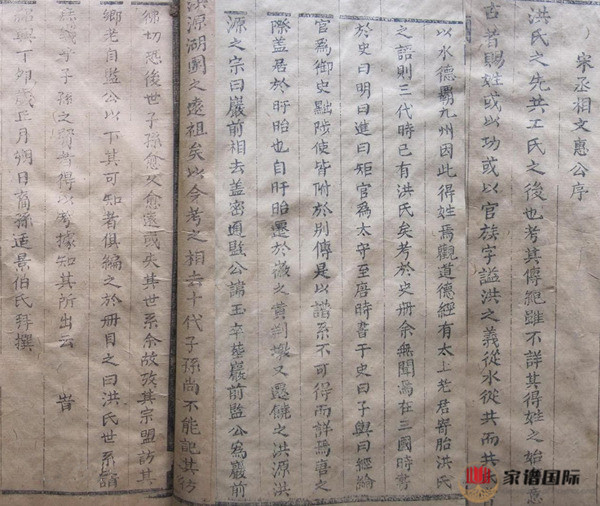 宋丞相文惠公序
洪氏之先共工氏之後也考其傳紀雖不詳其得姓之始意
古者賜姓或以功或以官族字謚洪之義從水從共而共氏
以水德霸九州因此得姓焉觀道德經有太上老君寄胎洪氏
之語則三代時已有洪氏矣考於史册余無聞焉在三國時書
於史曰明曰進曰矩官為太守至唐時書于史曰子輿曰經綸
官為御史黜陟使皆附於別傳是以譜系不可得而詳焉唐之
際蓋居於盱眙也自盱眙遷於徽之黄荆墩又遷饒之洪源洪
源之宗曰巖前相去蓋密邇監公諱玉幸基巖前監公為巖前
洪源湖園之遠祖矣以今考之相去十代子孫尚不能記其行
切恐後世子孫愈久愈遠或失其世系余故攷其宗盟訪其
鄉老自監公以下其可知者俱編之於册目之曰洪氏世系譜
子子孫孫之賢者得以考據知其所出云 旹
丁卯歲正月朔日裔孫适景伯氏拜撰
家谱国际